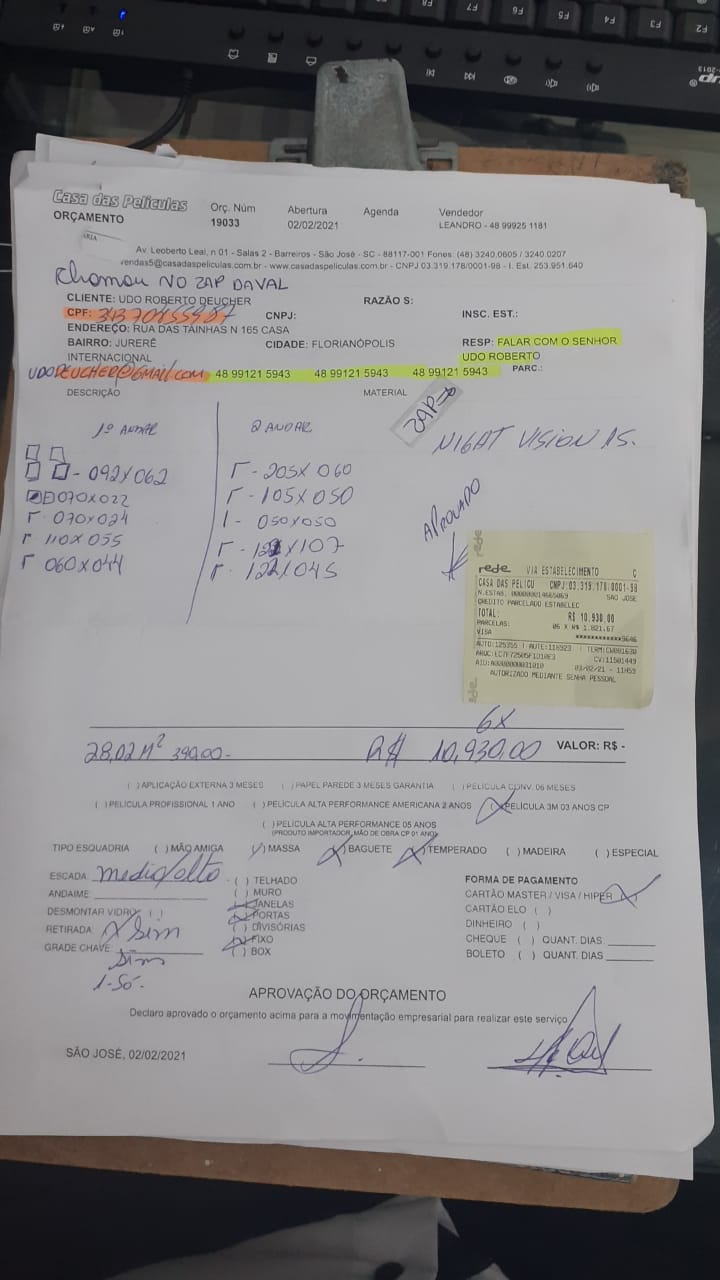 F8 F7 F6 F5 F4 F3 F2
Casa das Películas
ORÇAMENTO
Orç. Núm
19033
Abertura
02/02/2021
Agenda
Vendedor
LEANDRO - 48 99925 1181
Av. Leoberto Leal, n 01 - Salas 2 - Barreiros - São José - SC - 88117-001 Fones: (48) 3240.0605 / 3240.0207
vendas5@casadaspeliculas.com.br - www.casadaspeliculas.com.br - CNPJ 03.319.178/0001-98 - I. Est. 253.951.640
Chamou NO ZAP DAVAL
CLIENTE: UDO ROBERTO DEUCHER RAZÃO S:
CPF: CNPJ: INSC. EST.:
ENDEREÇO: RUA DAS TAINHAS N 165 CASA
BAIRRO: JURERÊ CIDADE: FLORIANÓPOLIS RESP: FALAR COM O SENHOR
INTERNACIONAL UDO ROBERTO
UDODEUCHER@GMAIL.COM 48 99121 5943 48 99121 5943 48 99121 5943 PARC.:
DESCRIÇÃO MATERIAL
ZAP
1º ANDAR 2 ANDAR NIGHT VISION 15.
- 092X062 - 205X 060
070X022 - 105X050
- 070X024 - 050X050
- 110X055 X107
060X044 X045
APROVADO
rede
rede VIA ESTABELECIMENTO C
CASA DAS PELICU CNPJ:03.319.178/0001-98
N.ESTAB: 000000014665069 SAO JOSE
CREDITO PARCELADO ESTABELEC
TOTAL: R$ 10.930,00
PARCELAS: 06 X R$ 1.821,67
VISA ************9646
AUTO:125355 | AUTE:118923 | TERM:
CV:11501449
AID:A0000000031010 03/02/21 - 11H59
AUTORIZADO MEDIANTE SENHA PESSOAL
rede
6X
28,02 M² 390,00- R$ 10,930,00 VALOR: R$ -
( ) APLICAÇÃO EXTERNA 3 MESES ( ) PAPEL PAREDE 3 MESES GARANTIA ( ) PELÍCULA CONV. 06 MESES
( ) PELÍCULA PROFISSIONAL 1 ANO ( ) PELÍCULA ALTA PERFORMANCE AMERICANA 2 ANOS (X) PELÍCULA 3M 03 ANOS CP
( ) PELÍCULA ALTA PERFORMANCE 05 ANOS
(PRODUTO IMPORTADOR, MÃO DE OBRA CP 01 ANO)
TIPO ESQUADRIA ( ) MÃO AMIGA ( ) MASSA (X) BAGUETE (X) TEMPERADO ( ) MADEIRA ( ) ESPECIAL
ESCADA medio/alto
ANDAIME
DESMONTAR VIDRO ( )
RETIRADA: X Sim
GRADE CHAVE:
Sim
1-Só-
( ) TELHADO
( ) MURO
( ) JANELAS
(X) PORTAS
( ) DIVISÓRIAS
(X) FIXO
( ) BOX
FORMA DE PAGAMENTO
CARTÃO MASTER / VISA / HIPER (X)
CARTÃO ELO ( )
DINHEIRO ( )
CHEQUE ( ) QUANT. DIAS
BOLETO ( ) QUANT. DIAS
APROVAÇÃO DO ORÇAMENTO
Declaro aprovado o orçamento acima para a movimentação empresarial para realizar este serviço
SÃO JOSÉ, 02/02/2021